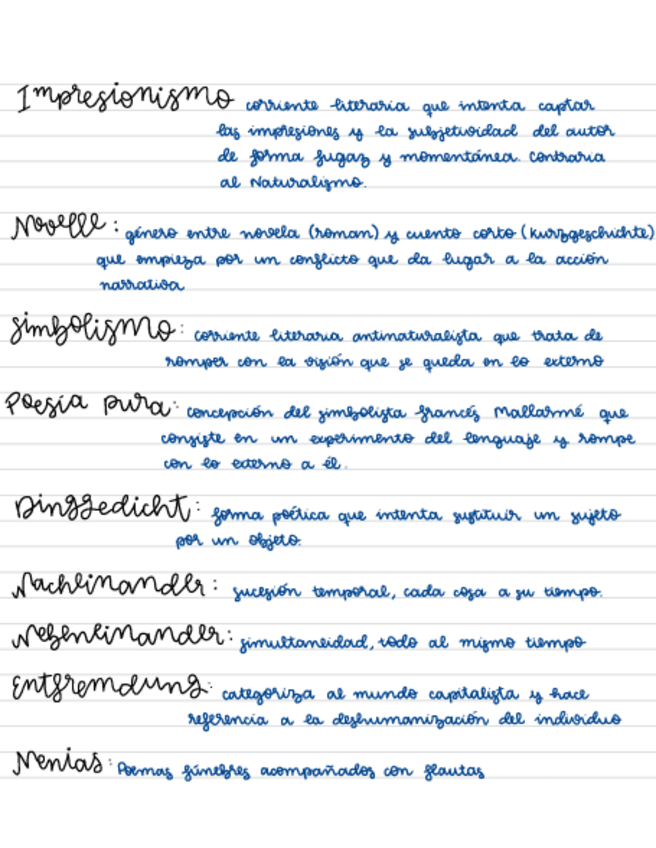 Impresionismo corriente literaria que intenta captar
las impresiones y la subjetividad del autor
de forma fugaz y momentánea. Contraria
al Naturalismo.
Novelle: género entre novela (roman) y cuento corto (kurzgeschichte)
que empieza por un conflicto que da lugar a la acción
narrativa
Simbolismo: corriente literaria antinaturalista que trata de
romper con la visión que se queda en lo externo
Poesía pura: concepción del simbolista francés Mallarmé que
consiste en un experimento del lenguaje y rompe
con lo externo a él.
Dinggedicht: forma poética que intenta sustituir un sujeto
por un objeto.
Nacheinander: sucesión temporal, cada cosa a su tiempo.
Nebeneinander: simultaneidad, todo al mismo tiempo
Entfremdung: categoriza al mundo capitalista y hace
referencia a la deshumanización del individuo
Nenias: Poemas fúnebres acompañados con flautas